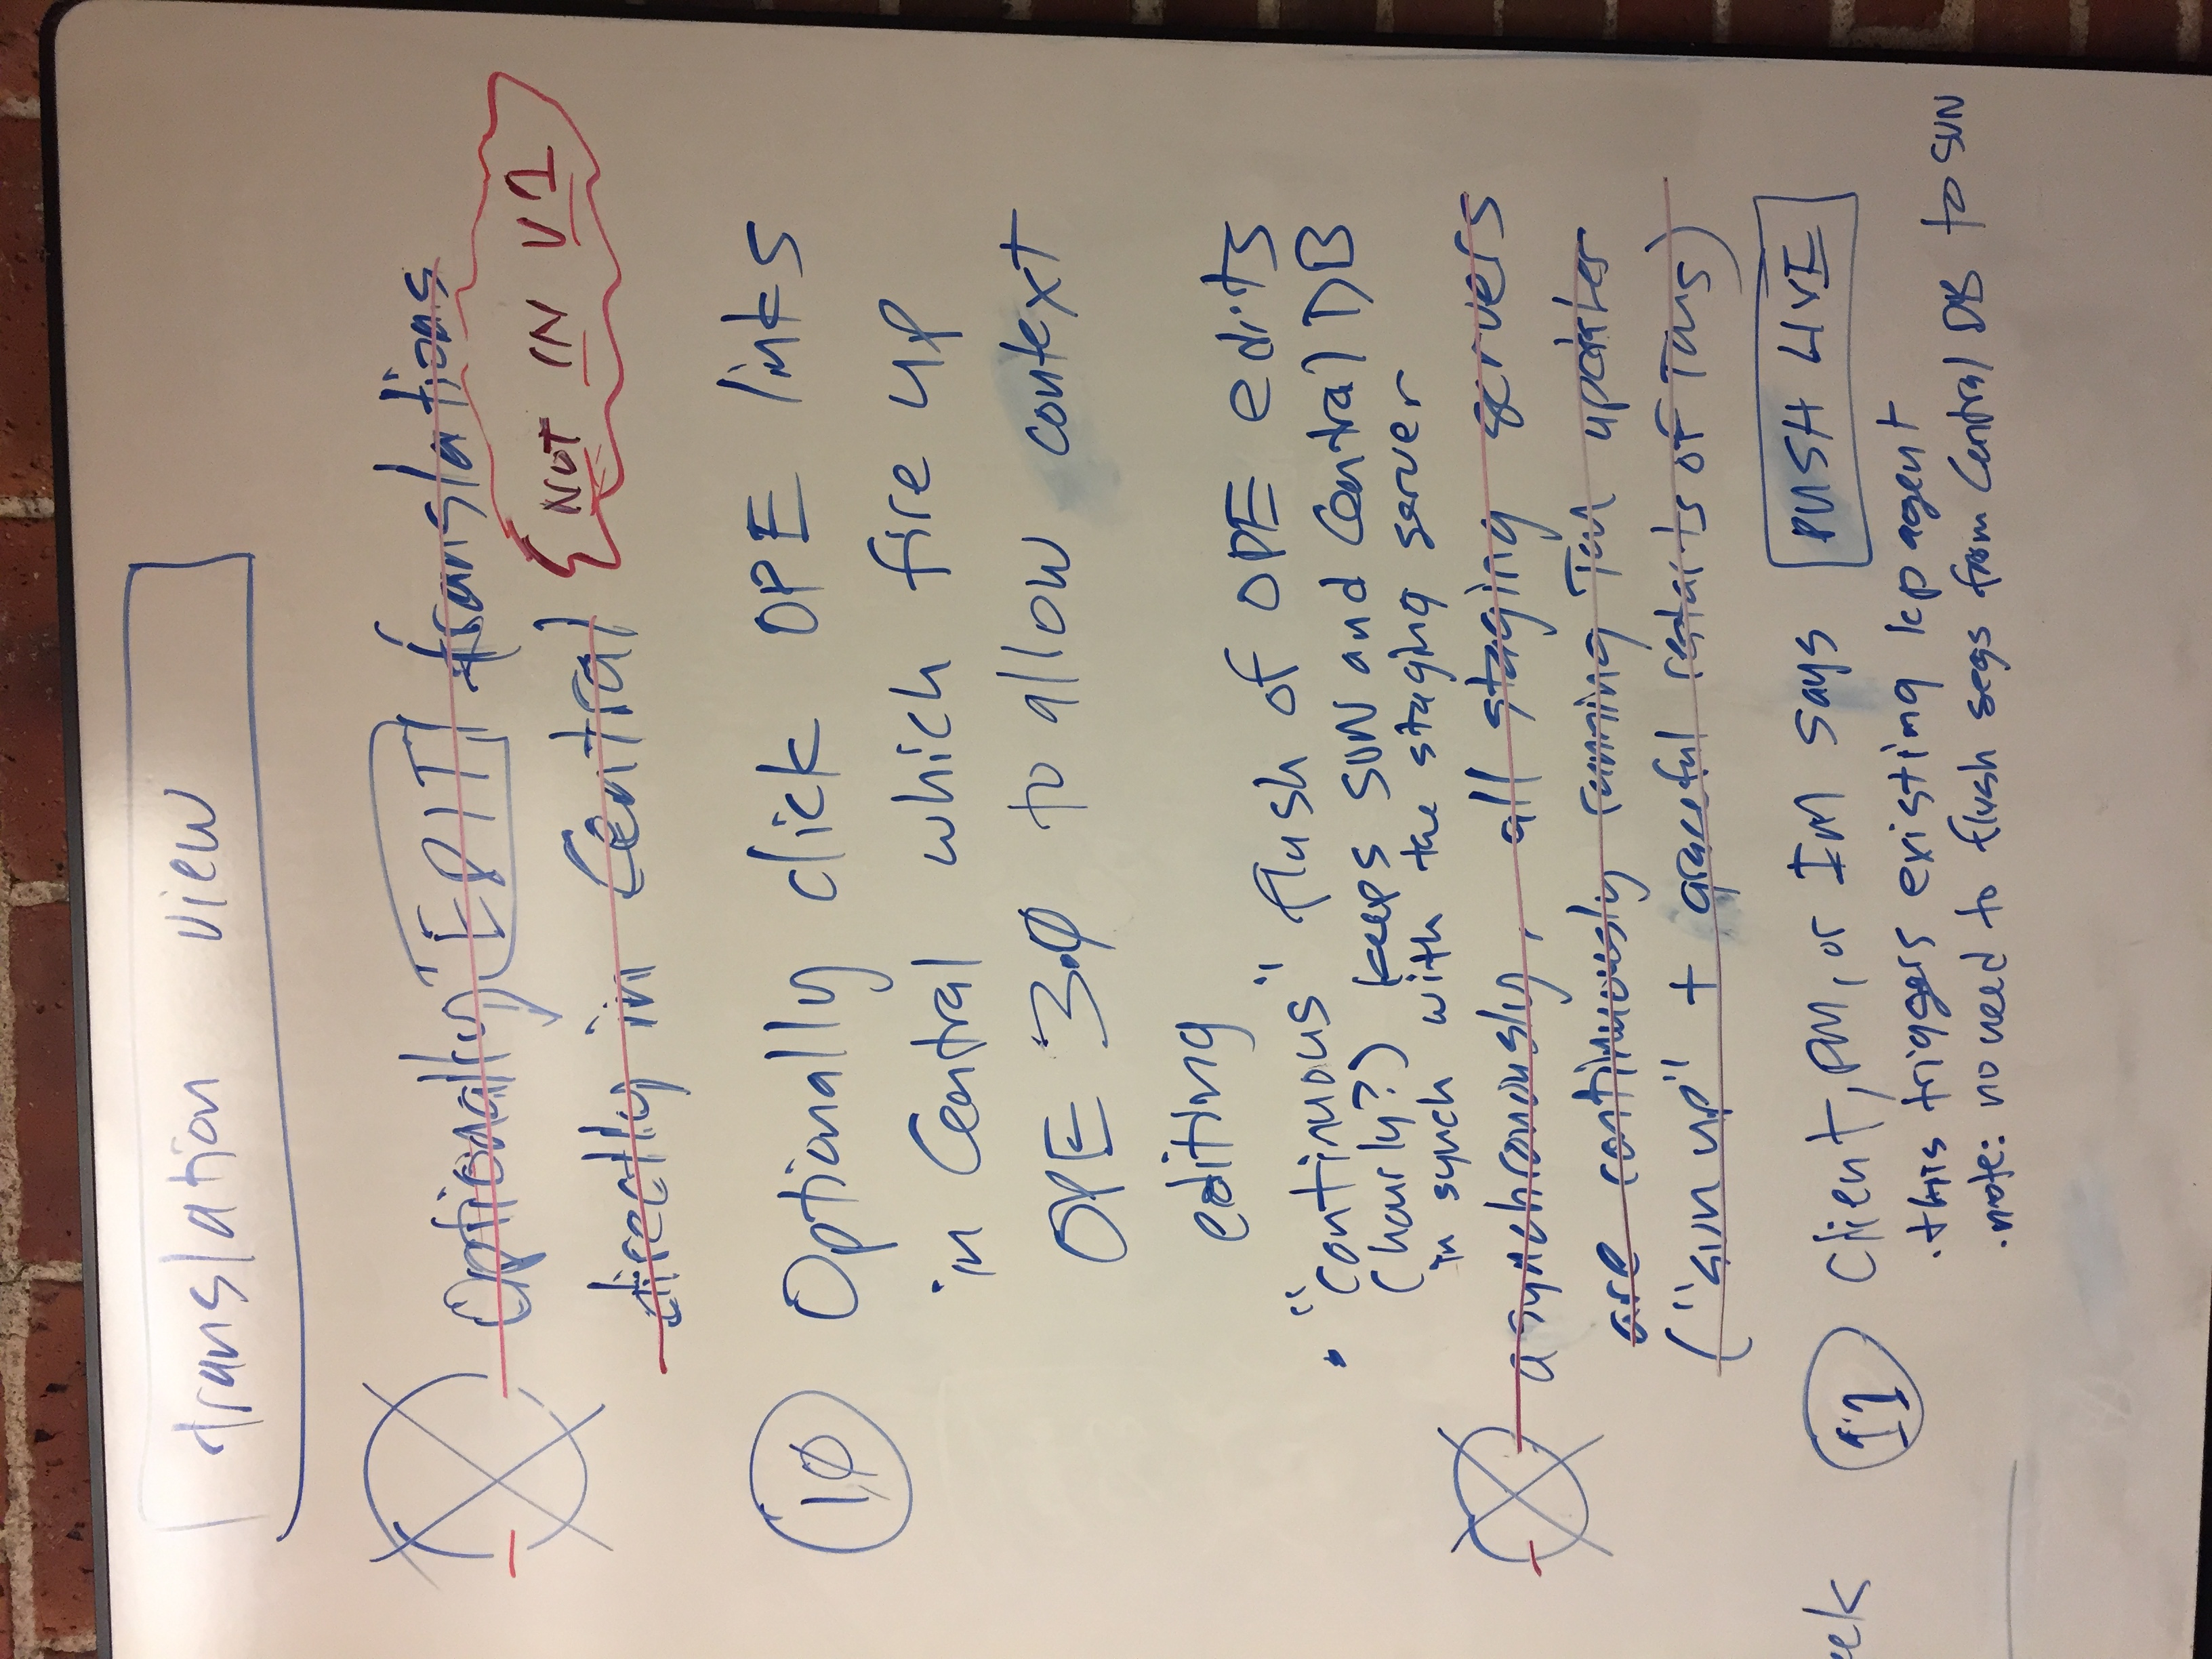 translation view
Optionally EDIT translations
directly in Central
NOT IN V1
10 Optionally click OPE links
in Central which fire up
OPE 3.0 to allow context
editing
• "continuous" flush of OPE edits
(hourly?) keeps SVN and Central DB
in synch with the staging server
asynchronously, all staging servers
are continuously running updater
("svn up" + graceful restarts of
11 Client, PM, or Im says PUSH LIVE
• this triggers existing agent
• note: no need to flush segs from Central DB to SVN
eek